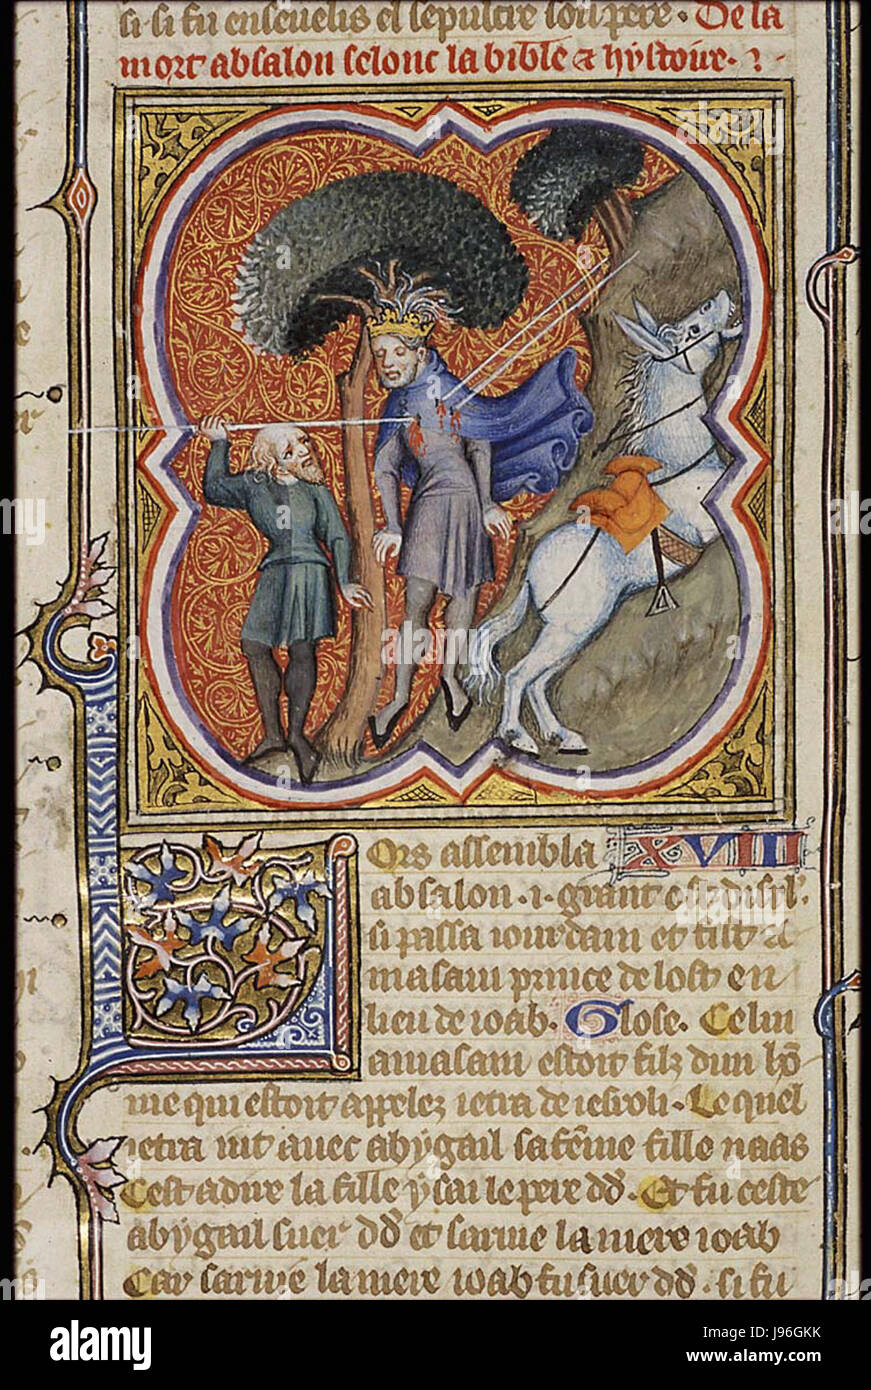 si fu ensevelis el sepulcre son pere. De la
mort absalon selonc la bible & hystoire.
Ors assembla XVIII
absalon .i. grant
si passa iourdain et fist a
masam prince de lost en
lieu de ioab. Glose. Celui
amasam estoit filz dun hō
me qui estoit appelez ietra de iesroli. Le quel
ietra uit auec abygail sa feme fille naas
Cest a dire la fille ysai le pere dd. Et fu ceste
abygail suer dd et saruie la mere ioab
Car saruie la mere ioab fu suer dd. si fu
alamy
Image ID: J96GKK
www.alamy.com